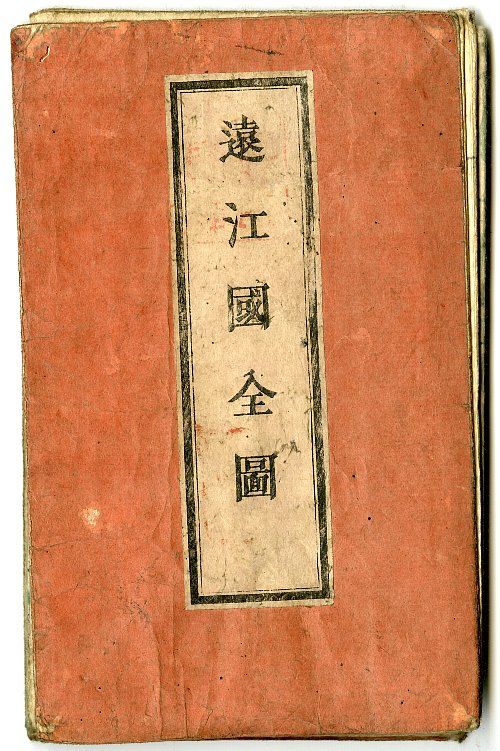 遠江國全圖